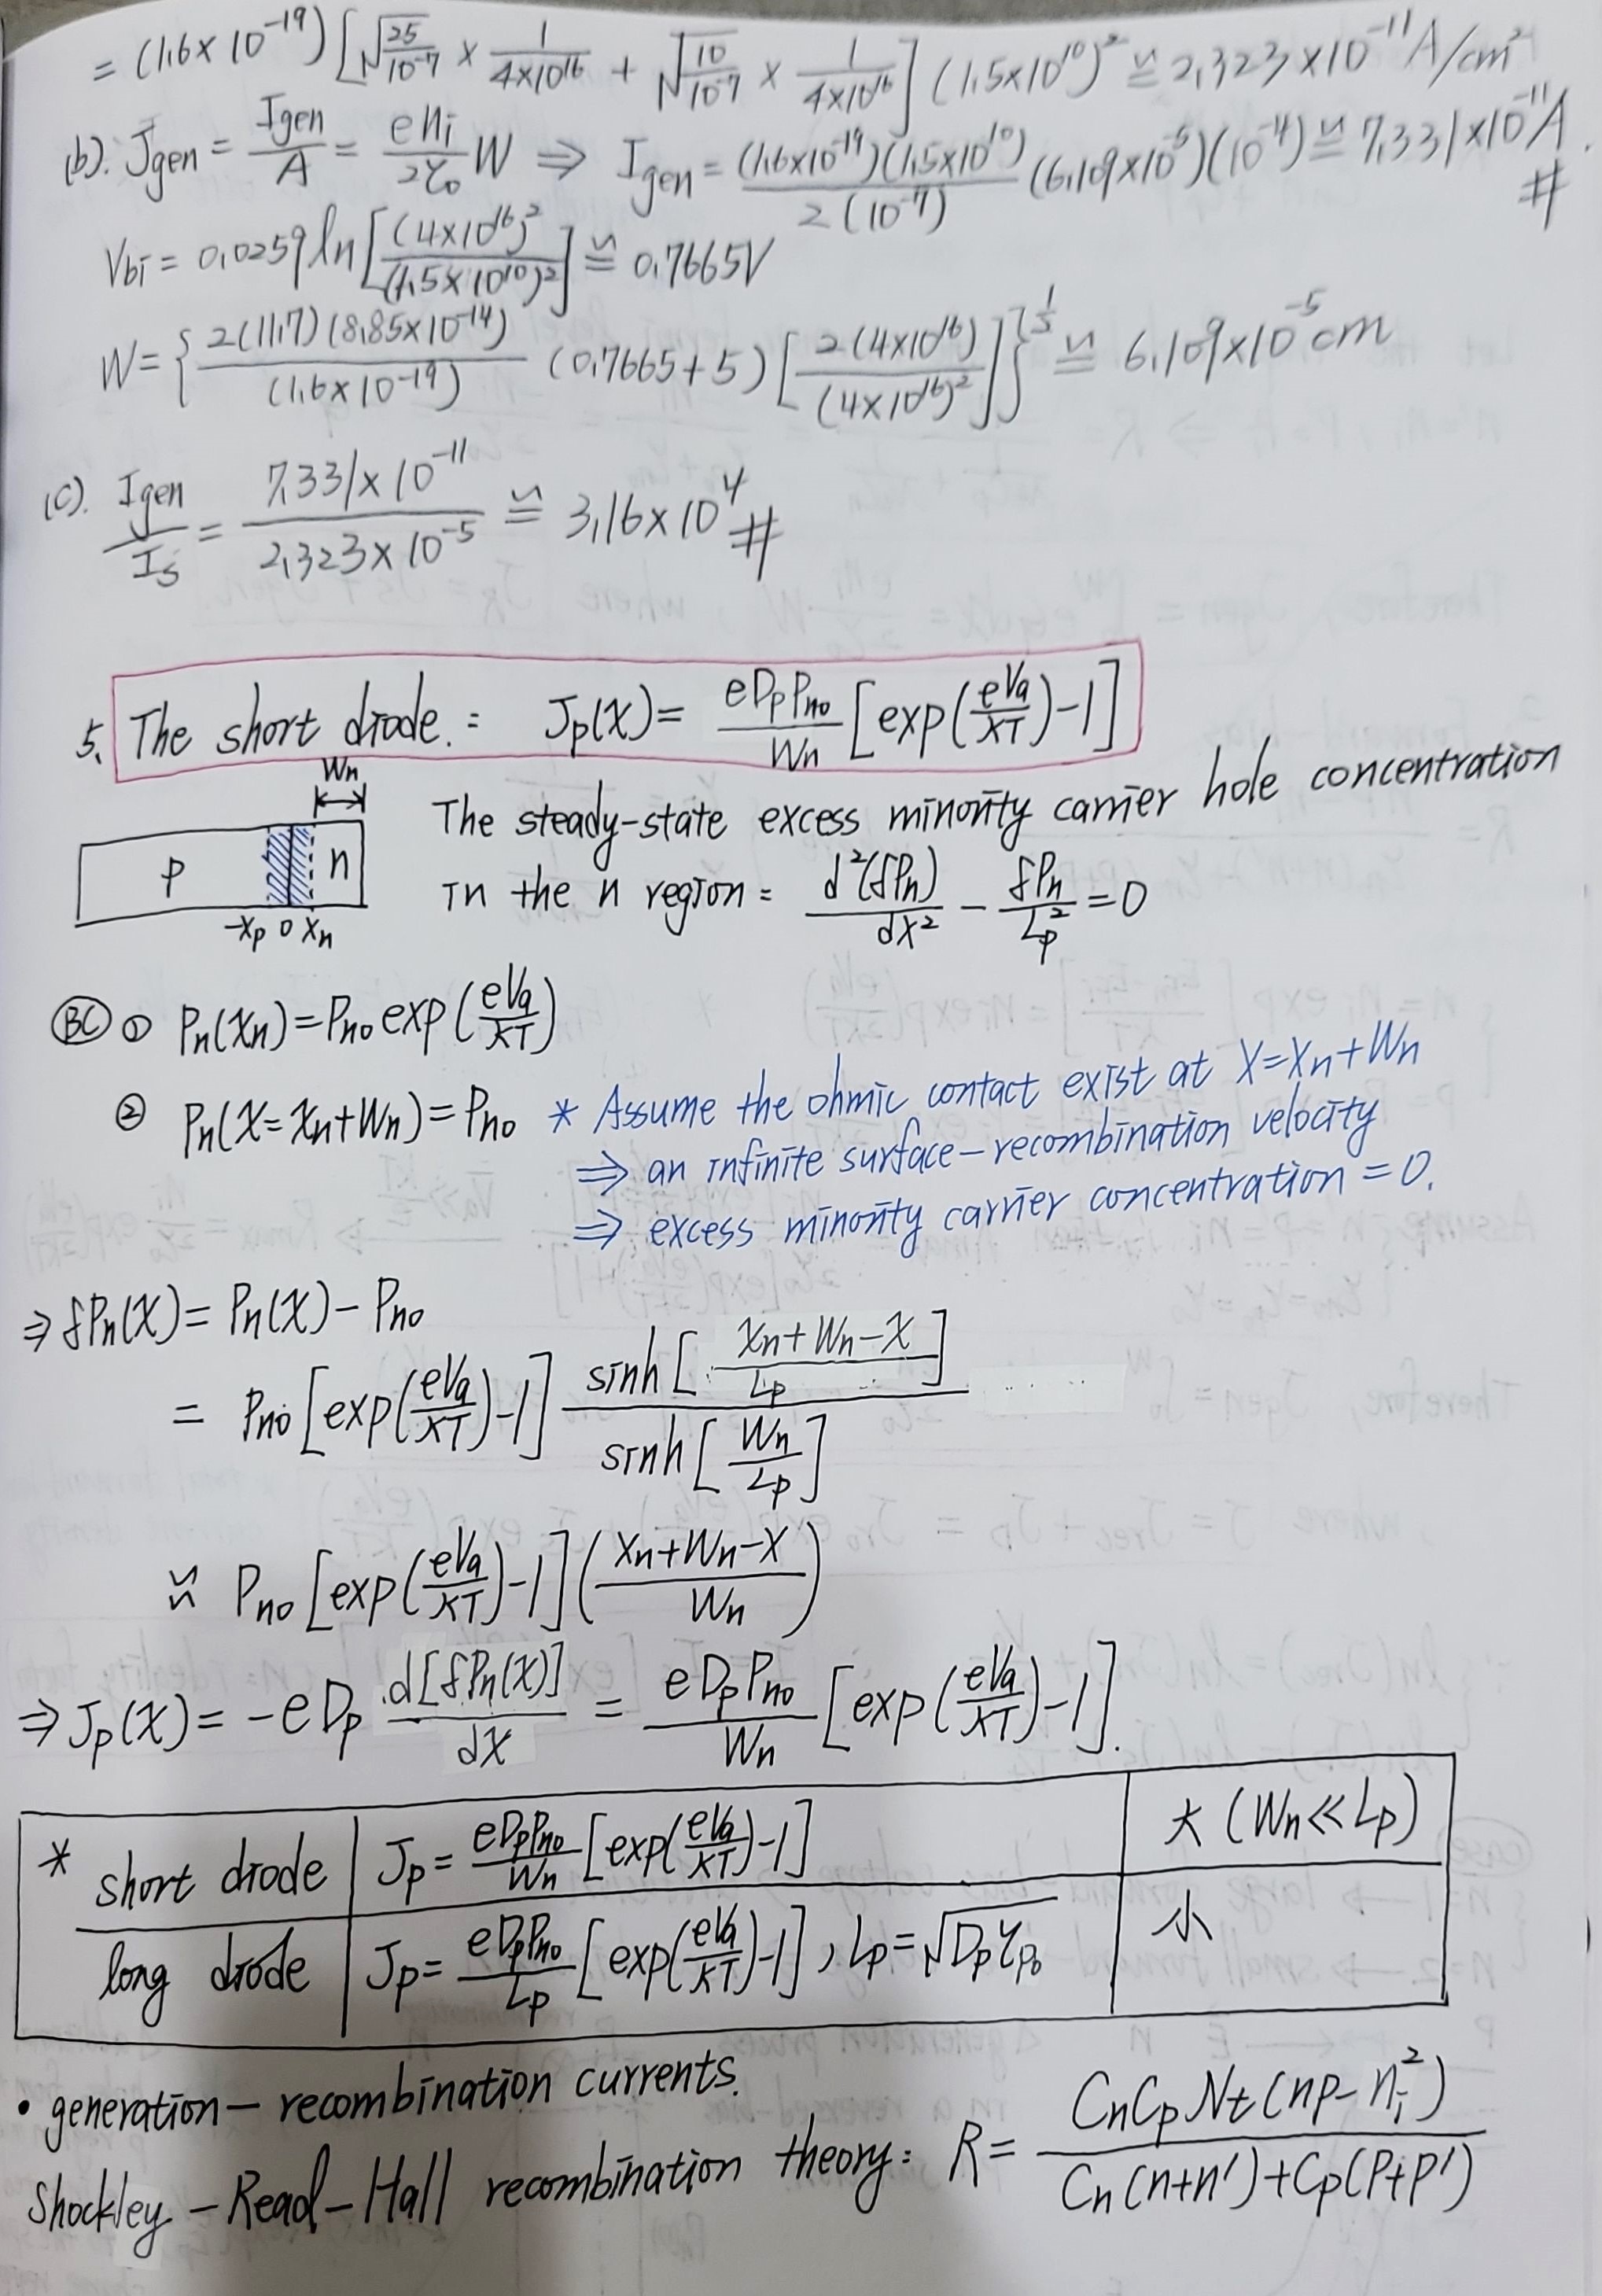 = (1.6×10^-19) [√(25/10^-7) × 1/(4×10^16) + √(10/10^-7) × 1/(4×10^16)] (1.5×10^10)^2 ≌ 2.323×10^-11 A/cm^2
(b). Jgen = Igen/A = (e ni/2τ0) W ⇒ Igen = (1.6×10^-19)(1.5×10^10)/(2(10^-7)) (6.109×10^-5)(10^-4) ≌ 7.331×10^-11 A. #
Vbi = 0.0259 ln[(4×10^16)^2/(1.5×10^10)^2] ≌ 0.7665V
W = {2(11.7)(8.85×10^-14)/(1.6×10^-19) (0.7665+5) [2(4×10^16)/(4×10^16)^2]}^(1/2) ≌ 6.109×10^-5 cm
(c). Igen/Is = 7.331×10^-11/2.323×10^-5 ≌ 3.16×10^4 #
5. The short diode. : Jp(x) = (eDpPno/Wn) [exp(eVa/kT)-1]
Wn
The steady-state excess minority carrier hole concentration
p n
in the n region : d^2(δPn)/dx^2 - δPn/Lp^2 = 0
-xp 0 xn
BC ① Pn(xn) = Pno exp(eVa/kT)
② Pn(x = xn+Wn) = Pno * Assume the ohmic contact exist at x = xn+Wn
⇒ an infinite surface-recombination velocity
⇒ excess minority carrier concentration = 0.
⇒ δPn(x) = Pn(x) - Pno
= Pno [exp(eVa/kT)-1] sinh[(xn+Wn-x)/Lp] / sinh[Wn/Lp]
≈ Pno [exp(eVa/kT)-1] ((xn+Wn-x)/Wn)
⇒ Jp(x) = -eDp d[δPn(x)]/dx = (eDpPno/Wn) [exp(eVa/kT)-1].
* short diode Jp = (eDpPno/Wn) [exp(eVa/kT)-1] 大 (Wn≪Lp)
long diode Jp = (eDpPno/Lp) [exp(eVa/kT)-1], Lp = √(Dpτpo) 小
• generation-recombination currents.
Shockley-Read-Hall recombination theory : R = CnCpNt(np-ni^2) / (Cn(n+n')+Cp(p+p'))